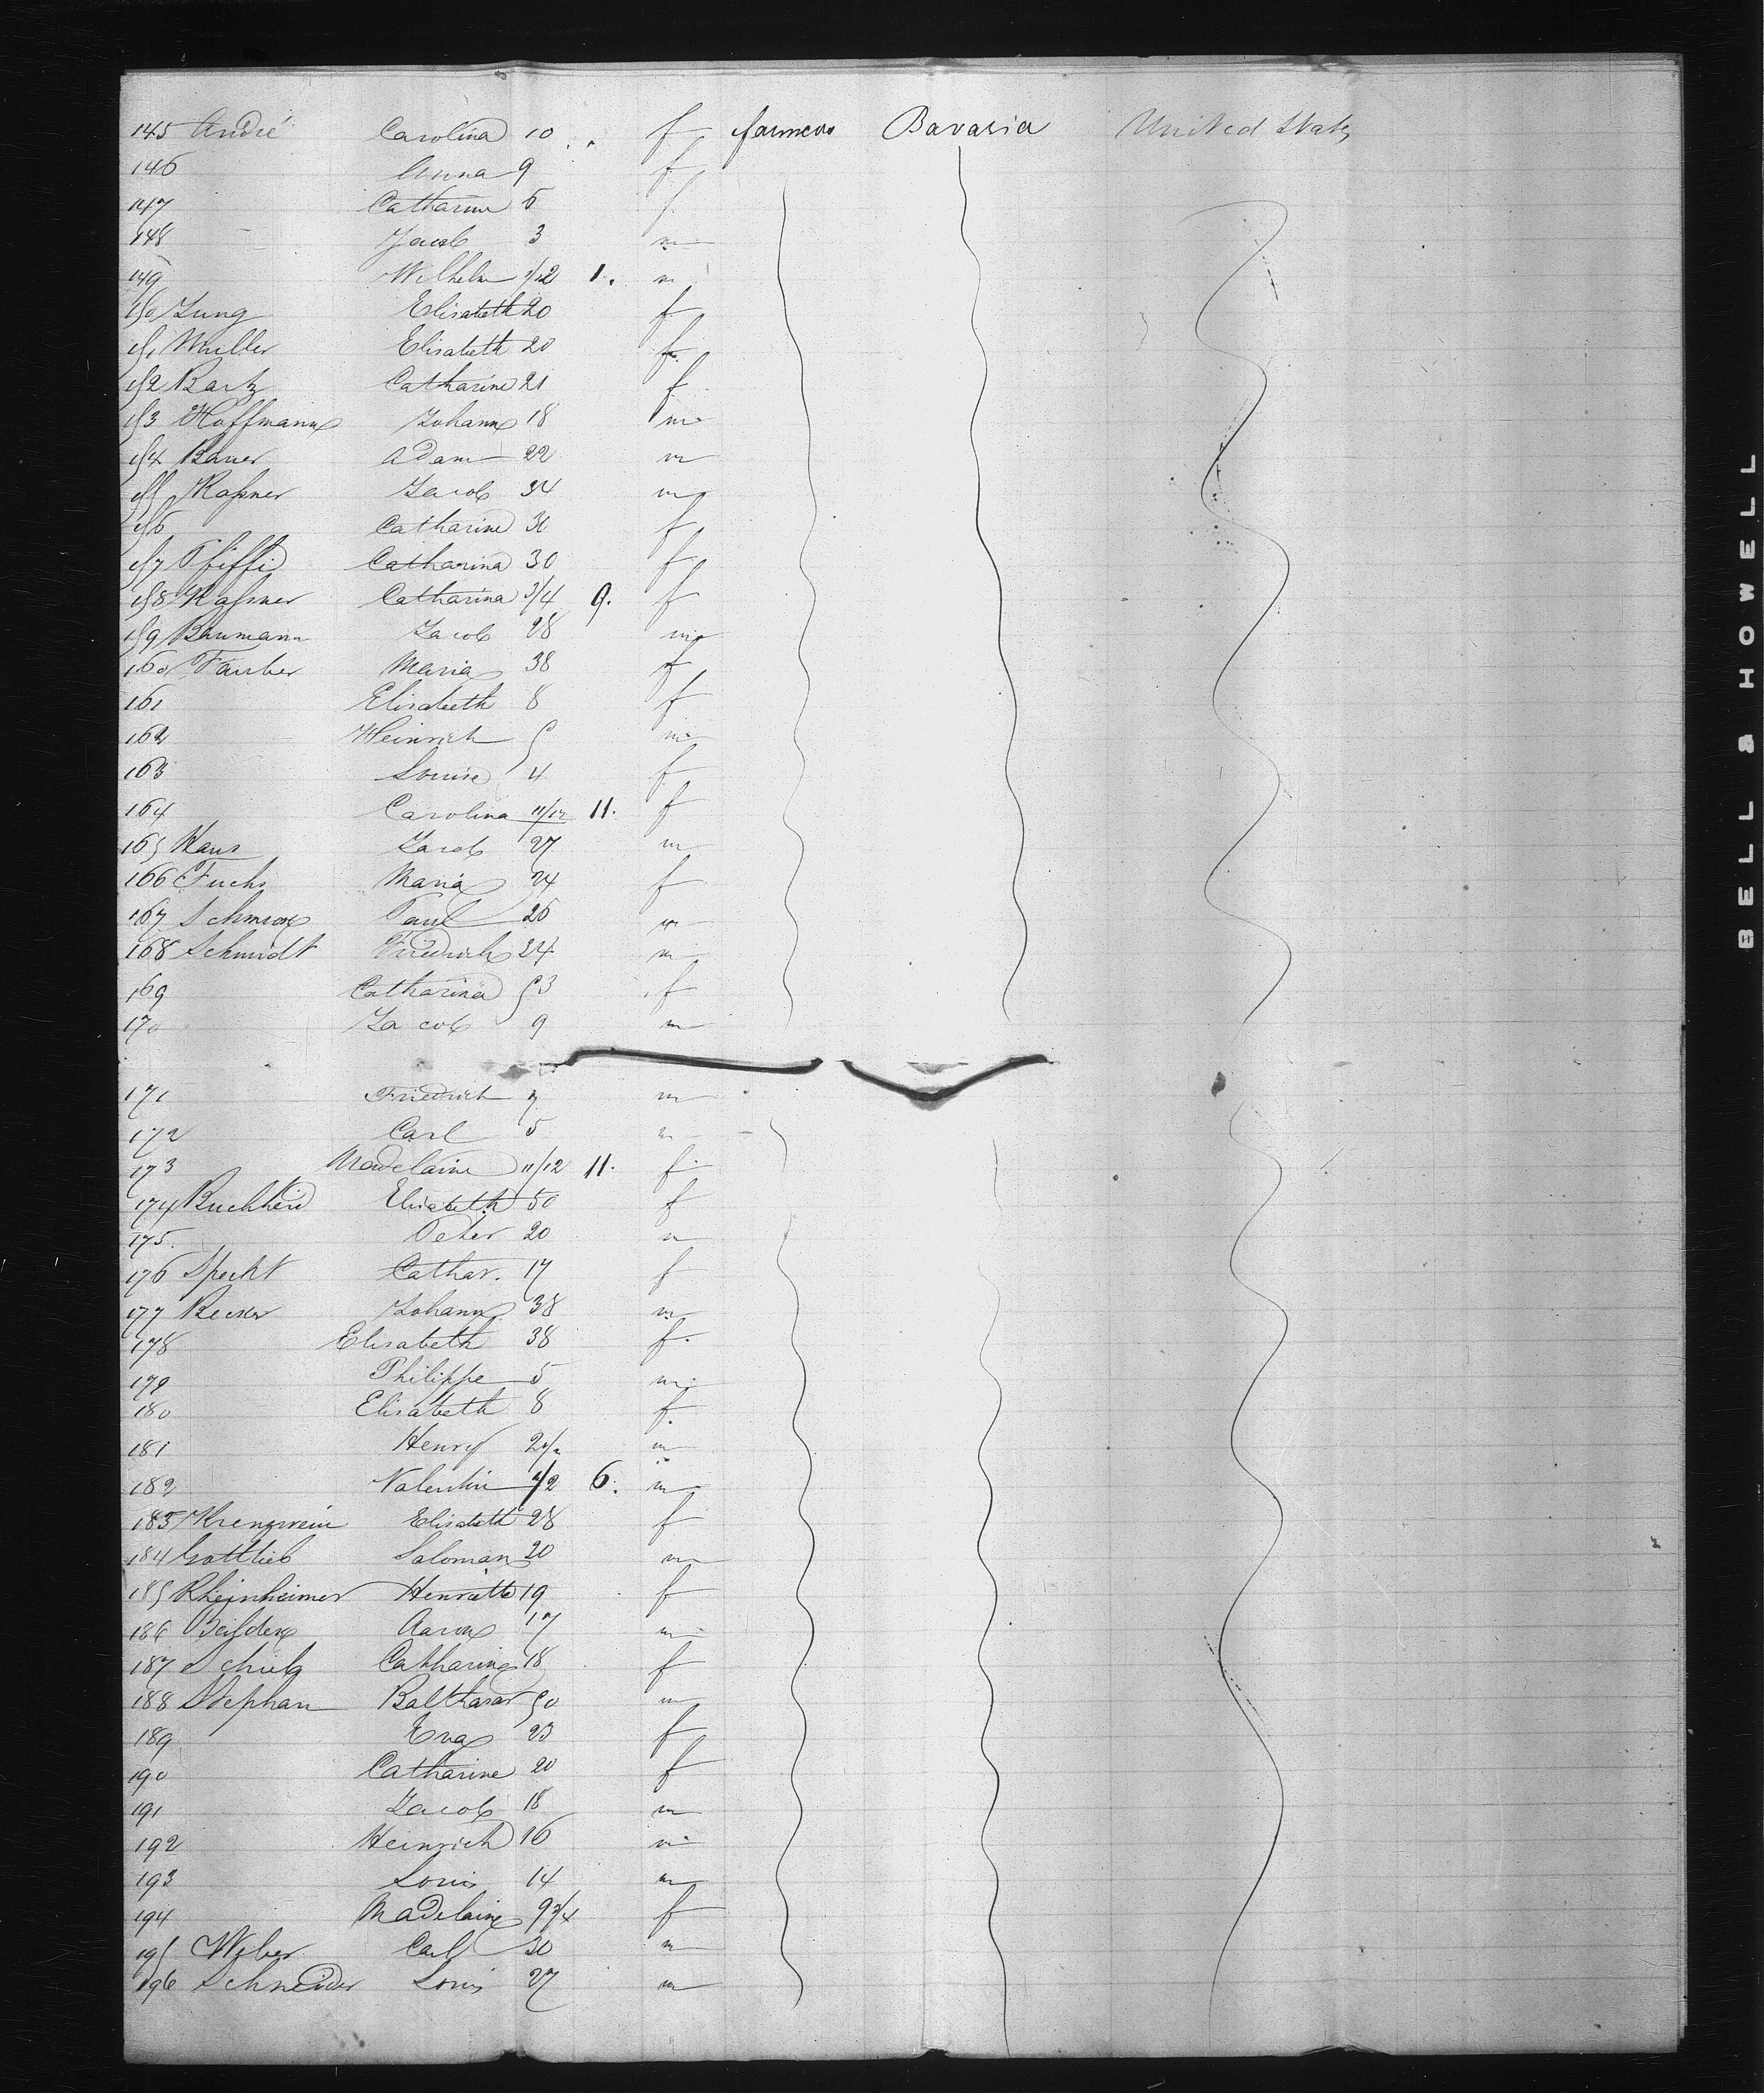 145 André Carolina 10 f farmers Bavaria United States
146 Anna 9 f
147 Catharine 5 f
148 Jacob 3 m
149 Wilhelm 1/12 1. m
150 Jung Elisabeth 20 f
151 Muller Elisabeth 20 f
152 Bartz Catharine 21 f
153 Hoffmann Johann 18 m
154 Bauer Adam 22 m
155 Kassner Jacob 34 m
156 Catharine f
157 Pfiffi Catharina 30 f
158 Kassner Catharina 3/4 9. f
159 Baumann Jacob 28 m
160 Fauber Maria 38 f
161 Elisabeth 8 f
162 Heinrich 5 m
163 Louise 4 f
164 Carolina 11/12 11. f
165 Jacob 27 m
166 Fuchs Maria 24 f
167 Paul 26 m
168 Schmidt Friedrich 24 m
169 Catharina 53 f
170 Jacob 9 m
171 Friedrich 7 m
172 Carl 5 m
173 Madelaine 11/12 11. f
174 Elisabeth 50 f
175. Peter 20 m
176 Specht Cathar. 17 f
177 Johann 38 m
178 Elisabeth 38 f
179 Philippe 5 m
180 Elisabeth 8 f
181 Henry m
182 Valentin 1/2 6. m
183 Elisabeth 28 f
184 Gottlieb Saloman 20 m
185 Rheinheimer Henriette 19 f
186 Aaron 17 m
187 Catharina 18 f
188 Stephan Balthasar 50 m
189 Eva 23 f
190 Catharine 20 f
191 Jacob 18 m
192 Heinrich 16 m
193 Louis 14 m
194 Madelaine 9 3/4 f
195 Weber Carl 30 m
196 Schneider Louis 27 m
BELL & HOWELL